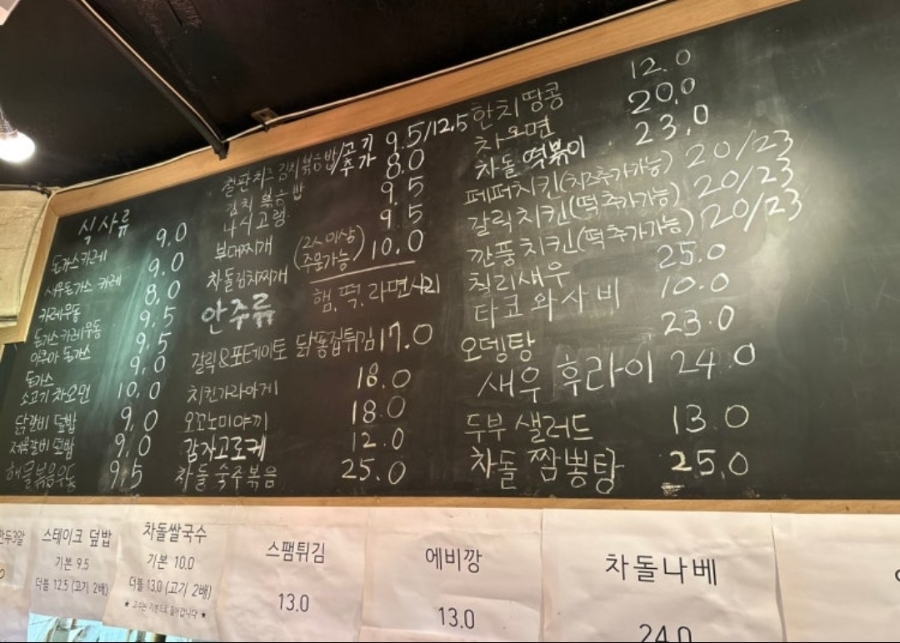 식사류
돈까스카레 9.0
새우돈가스 카레 9.0
카레우동 8.0
돈가스 카레우동 9.5
야쿠아 돈가스 9.5
돈가스 9.0
소고기 차오면 10.0
닭갈비 덮밥 9.0
제육갈비 덮밥 9.0
해물볶음우동 9.5
철판치즈김치볶음밥/고기추가 9.5/12.5
김치볶음밥 8.0
나시고랭 9.5
부대찌개 9.5
차돌김치찌개 (2人이상 주문가능) 10.0
햄, 떡, 라면사리
안주류
갈릭&포테이토 닭똥집튀김 17.0
치킨가라아게 18.0
오꼬노미야끼 18.0
감자고로케 12.0
차돌 숙주볶음 25.0
한치땅콩 12.0
차오면 20.0
차돌 떡볶이 23.0
페퍼치킨(치즈추가가능) 20/23
갈릭치킨(떡추가가능) 20/23
깐풍치킨(떡추가가능) 20/23
칠리새우 25.0
타코와사비 10.0
오뎅탕 23.0
새우 후라이 24.0
두부 샐러드 13.0
차돌 짬뽕탕 25.0
만두3알
스테이크 덮밥
기본 9.5
더블 12.5 (고기 2배)
차돌쌀국수
기본 10.0
더블 13.0 (고기 2배)
스팸튀김
13.0
에비깡
13.0
차돌나베
24.0